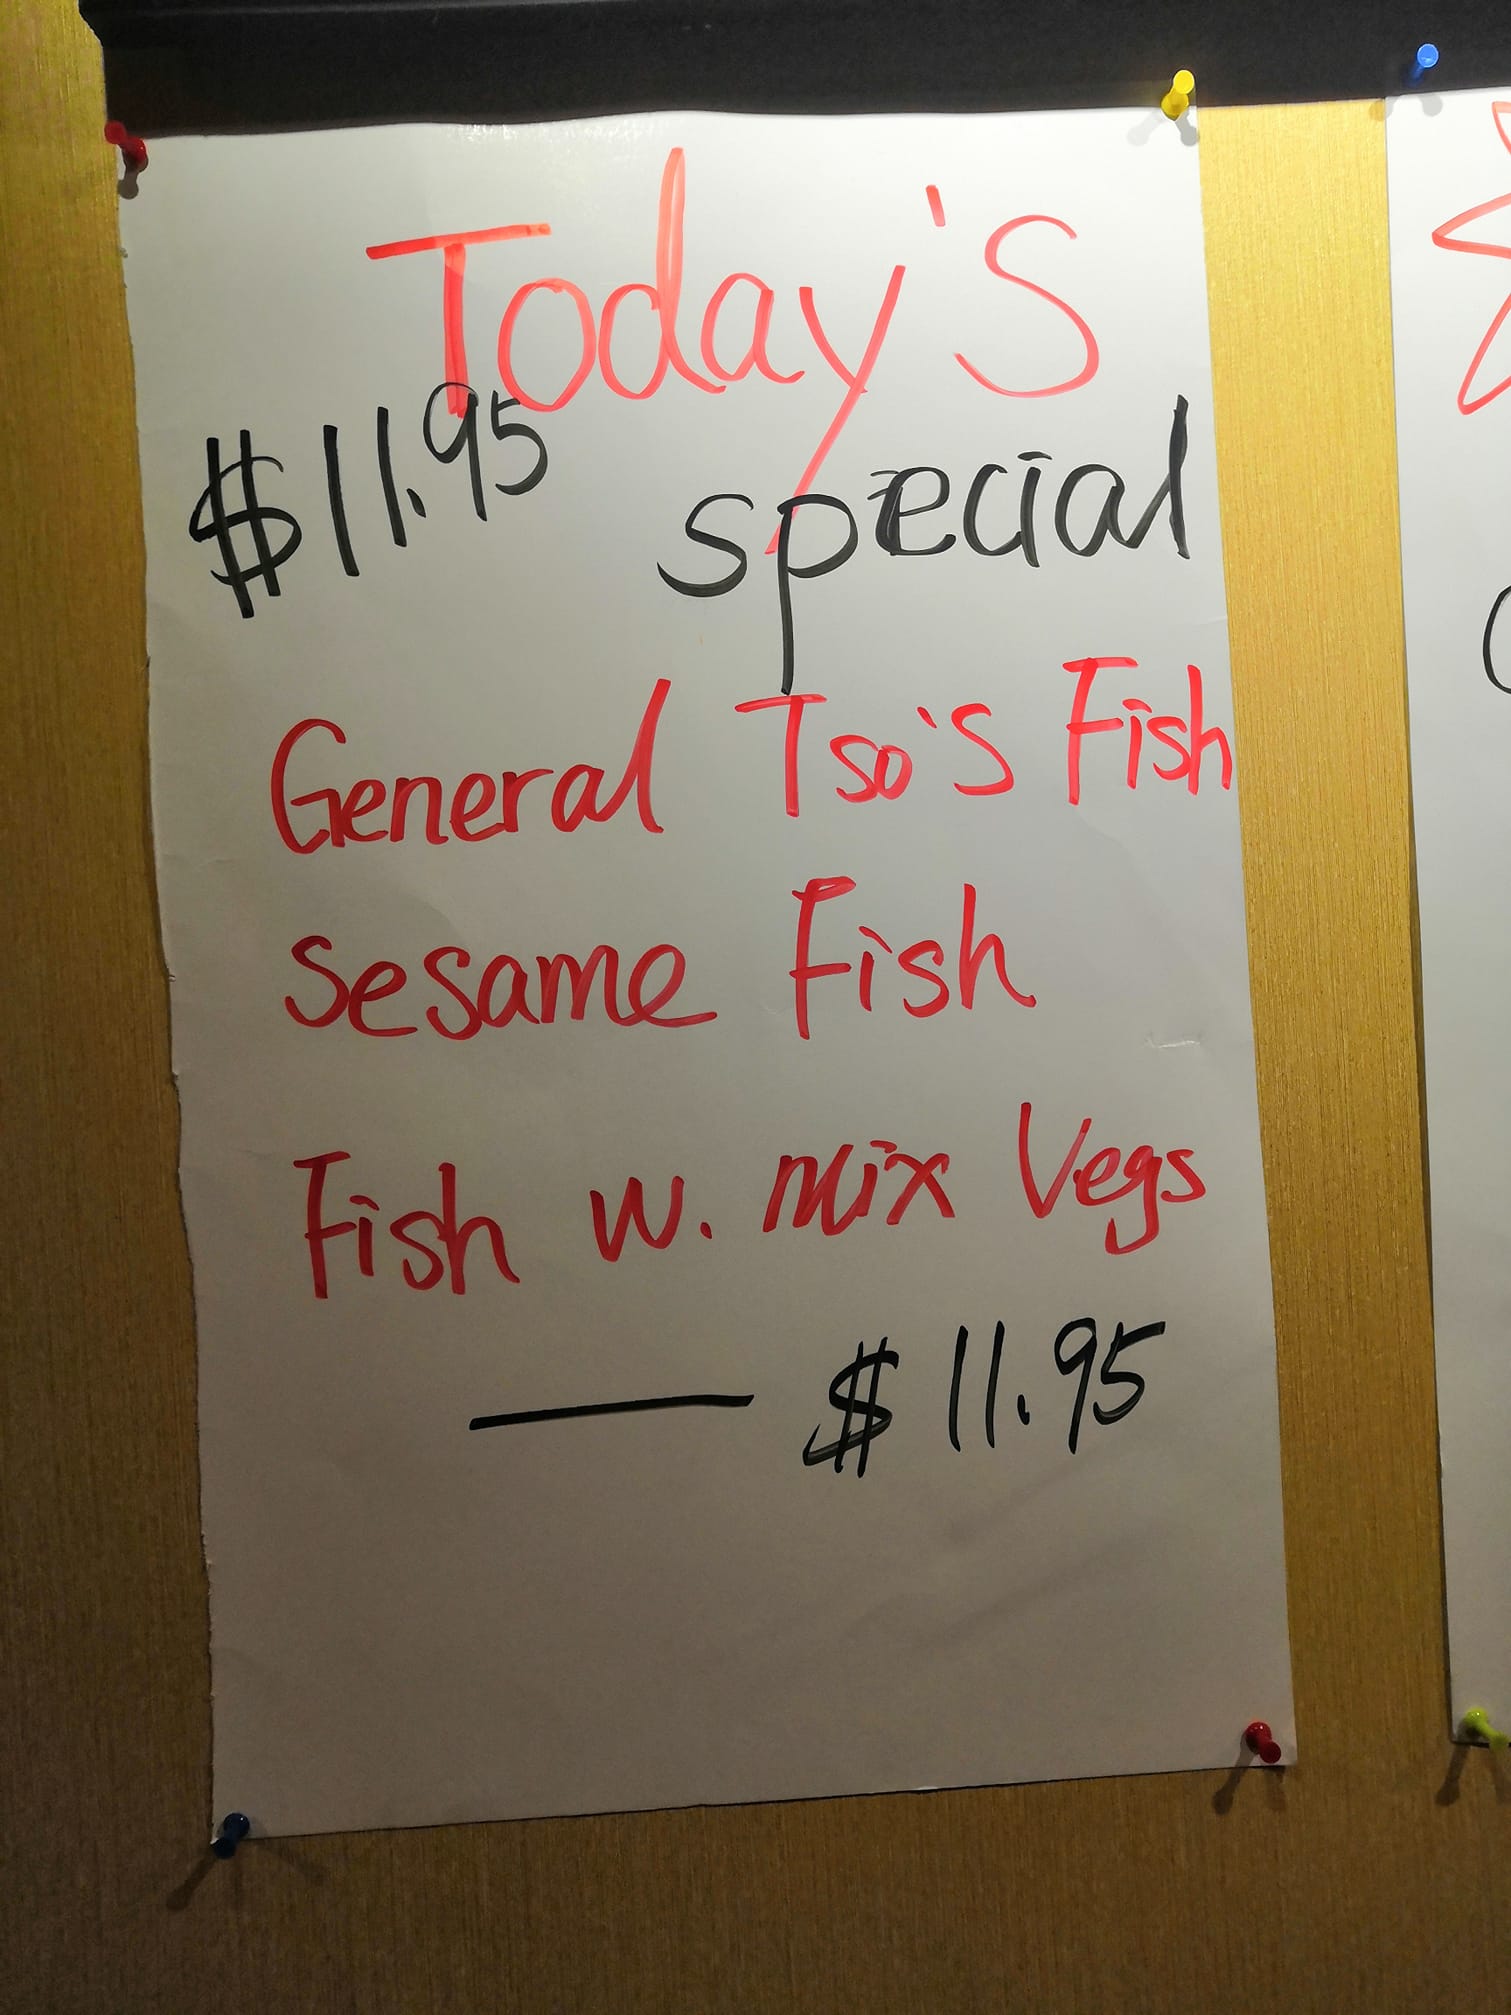 Today's
$11.95 special
General Tso's Fish
Sesame Fish
Fish w. mix Vegs
— $11.95